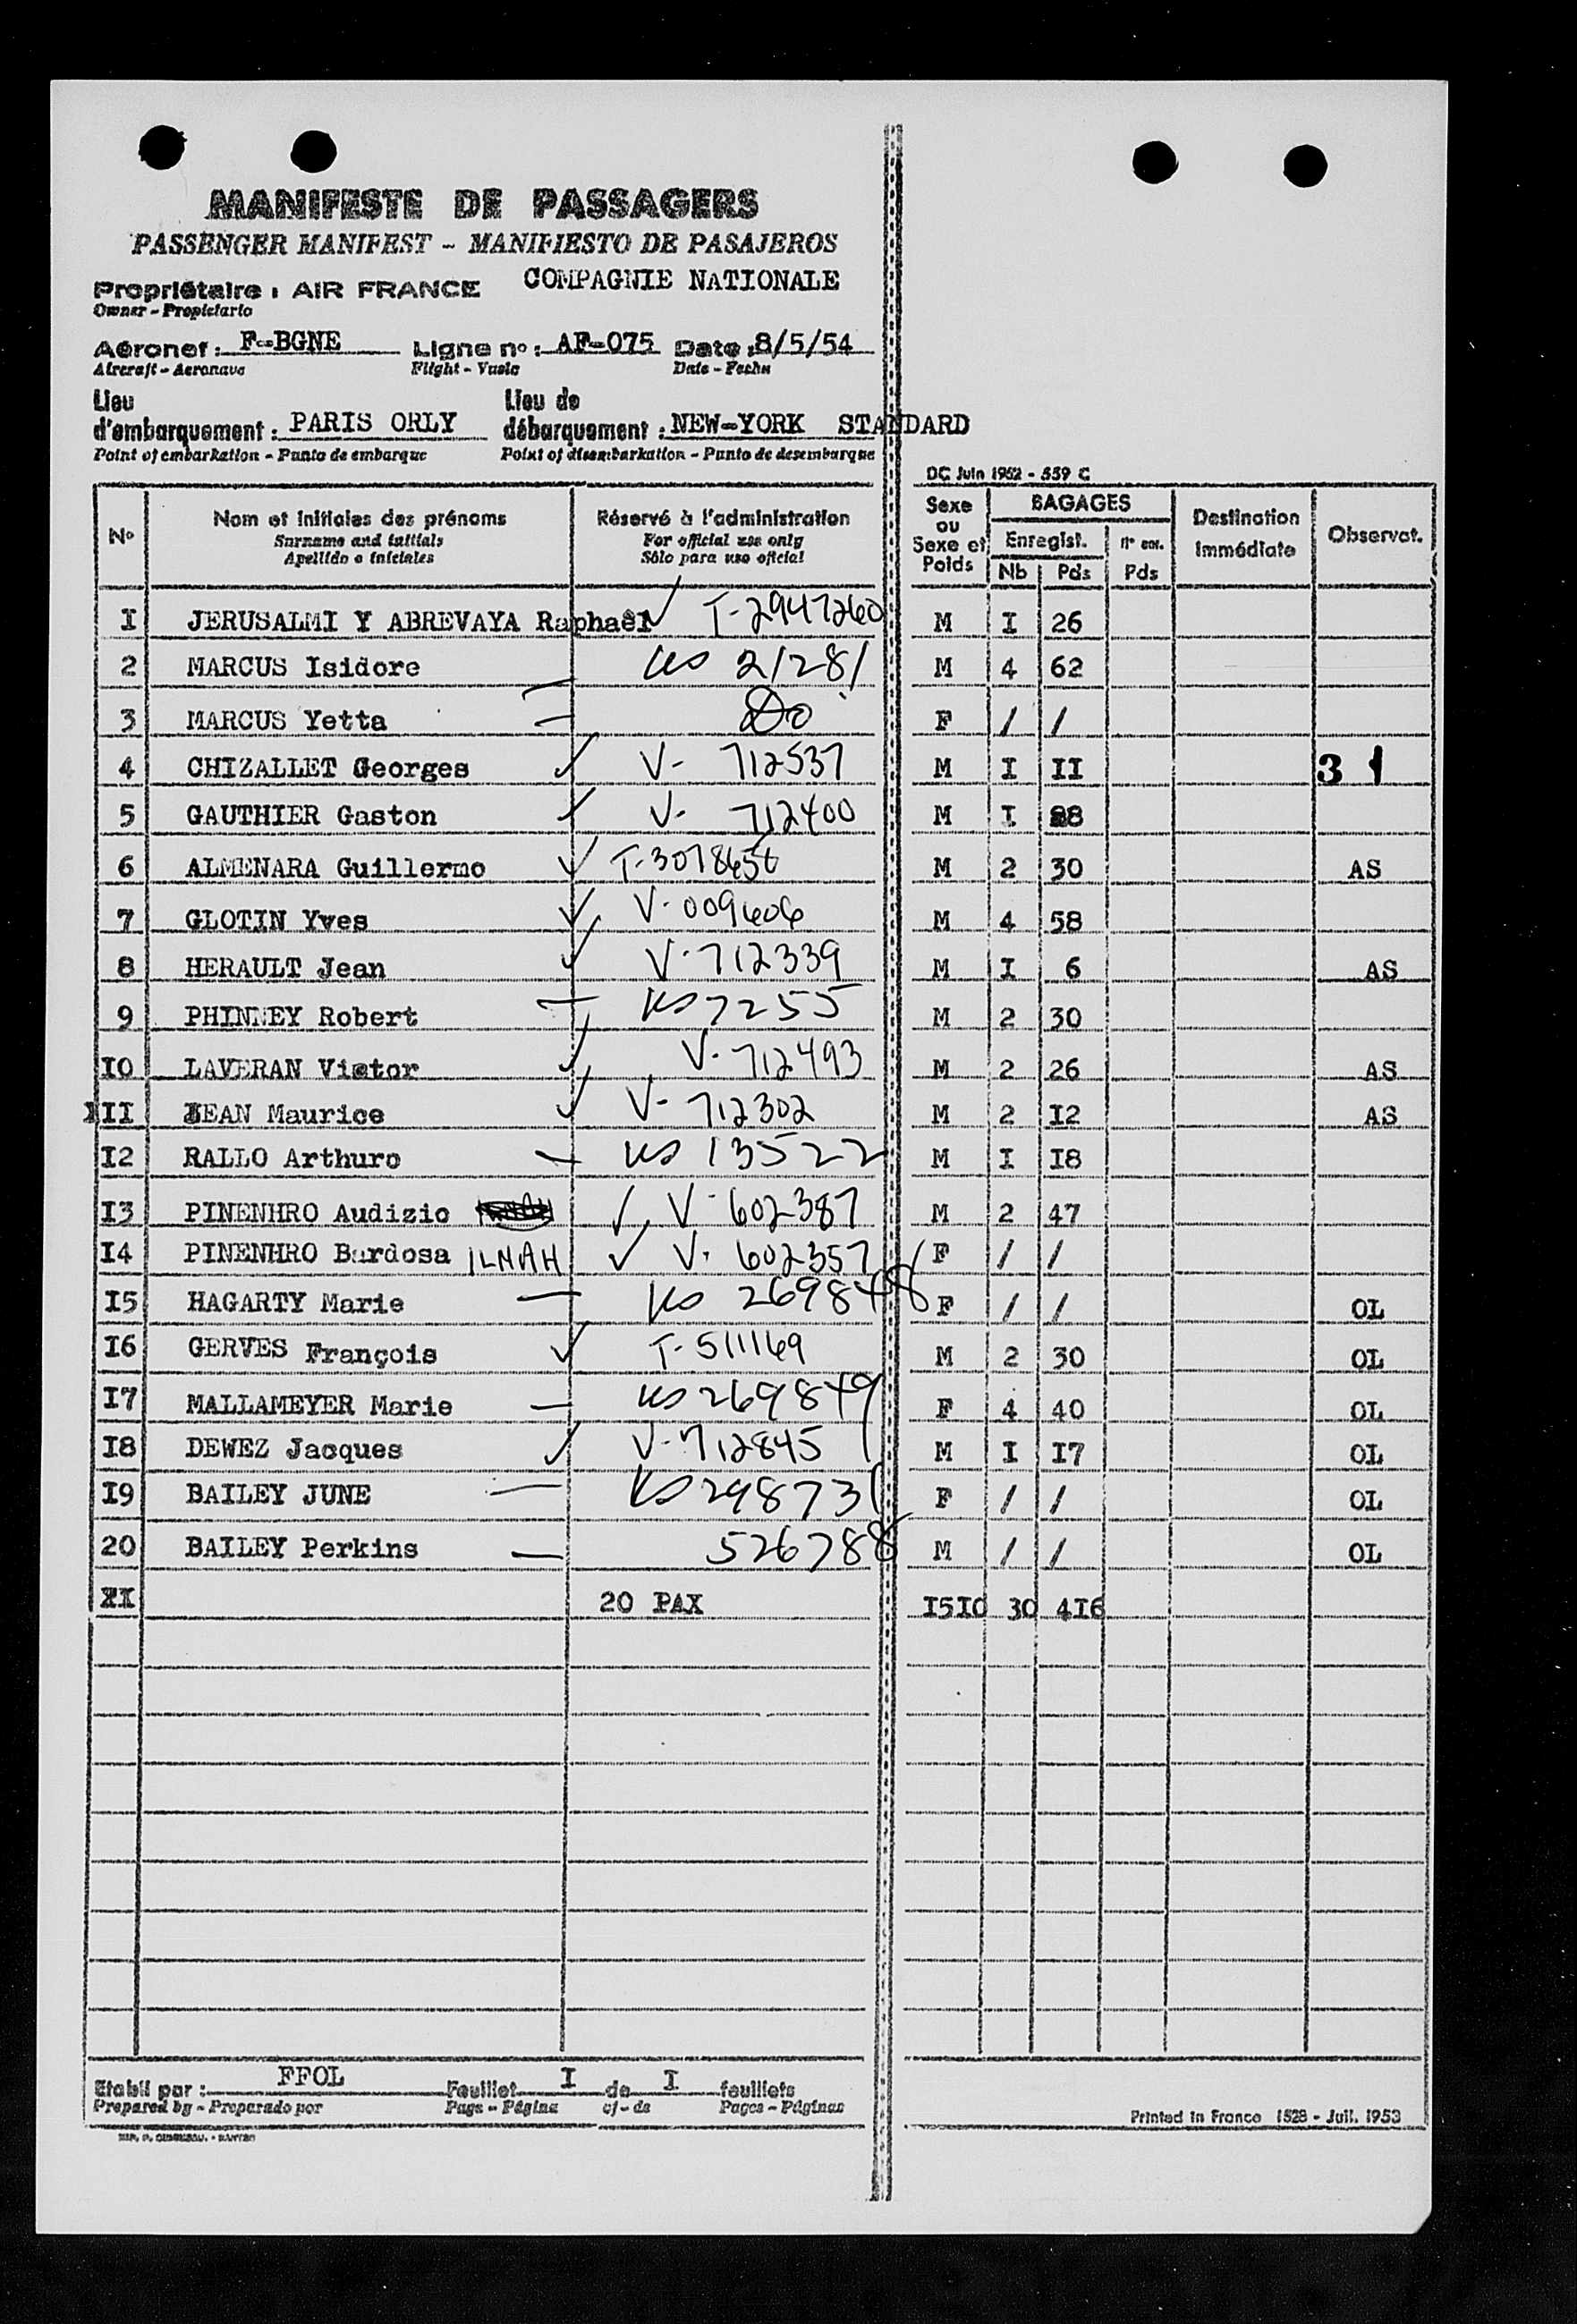 MANIFESTE DE PASSAGERS
PASSENGER MANIFEST - MANIFIESTO DE PASAJEROS
Propriétaire : AIR FRANCE COMPAGNIE NATIONALE
Owner - Propietario
Aéronef : F-BGNE Ligne no : AF-075 Date : 8/5/54
Aircraft - Aeronave Flight - Vuelo Date - Fecha
Lieu Lieu de
d'embarquement : PARIS ORLY débarquement : NEW-YORK STANDARD
Point of embarkation - Punto de embarque Point of disembarkation - Punto de desembarque
DC Juin 1952 - 559 C
No Nom et initiales des prénoms Réservé à l'administration Sexe ou Sexe et Poids BAGAGES Destination immédiate Observat.
Surname and initials For official use only Enregist.
Apellido e iniciales Sólo para uso oficial Nb Pds Pds
I JERUSALMI Y ABREVAYA Raphaël T-2947260 M I 26
2 MARCUS Isidore US 21281 M 4 62
3 MARCUS Yetta Do F / /
4 CHIZALLET Georges V- 712537 M I II 3 1
5 GAUTHIER Gaston V- 712400 M I 88
6 ALMENARA Guillermo T-3078656 M 2 30 AS
7 GLOTIN Yves V-009606 M 4 58
8 HERAULT Jean V-712339 M I 6 AS
9 PHINNEY Robert US 7255 M 2 30
I0 LAVERAN Victor V-712493 M 2 26 AS
II JEAN Maurice V-712302 M 2 I2 AS
I2 RALLO Arthuro US 13522 M I I8
I3 PINENHRO Audizio V-602387 M 2 47
I4 PINENHRO Bardosa ILMAH V. 602357 F / /
I5 HAGARTY Marie US 269848 F / / OL
I6 GERVES François T-511169 M 2 30 OL
I7 MALLAMEYER Marie US 269849 F 4 40 OL
I8 DEWEZ Jacques V-712845 M I I7 OL
I9 BAILEY JUNE US 298731 F / / OL
20 BAILEY Perkins 526788 M / / OL
20 PAX I5I0 30 4I6
Etabli par : FFOL Feuillet I de I feuillets
Prepared by - Preparado por Page - Página of - de Pages - Páginas
Printed in France 1528 - Juil. 1953